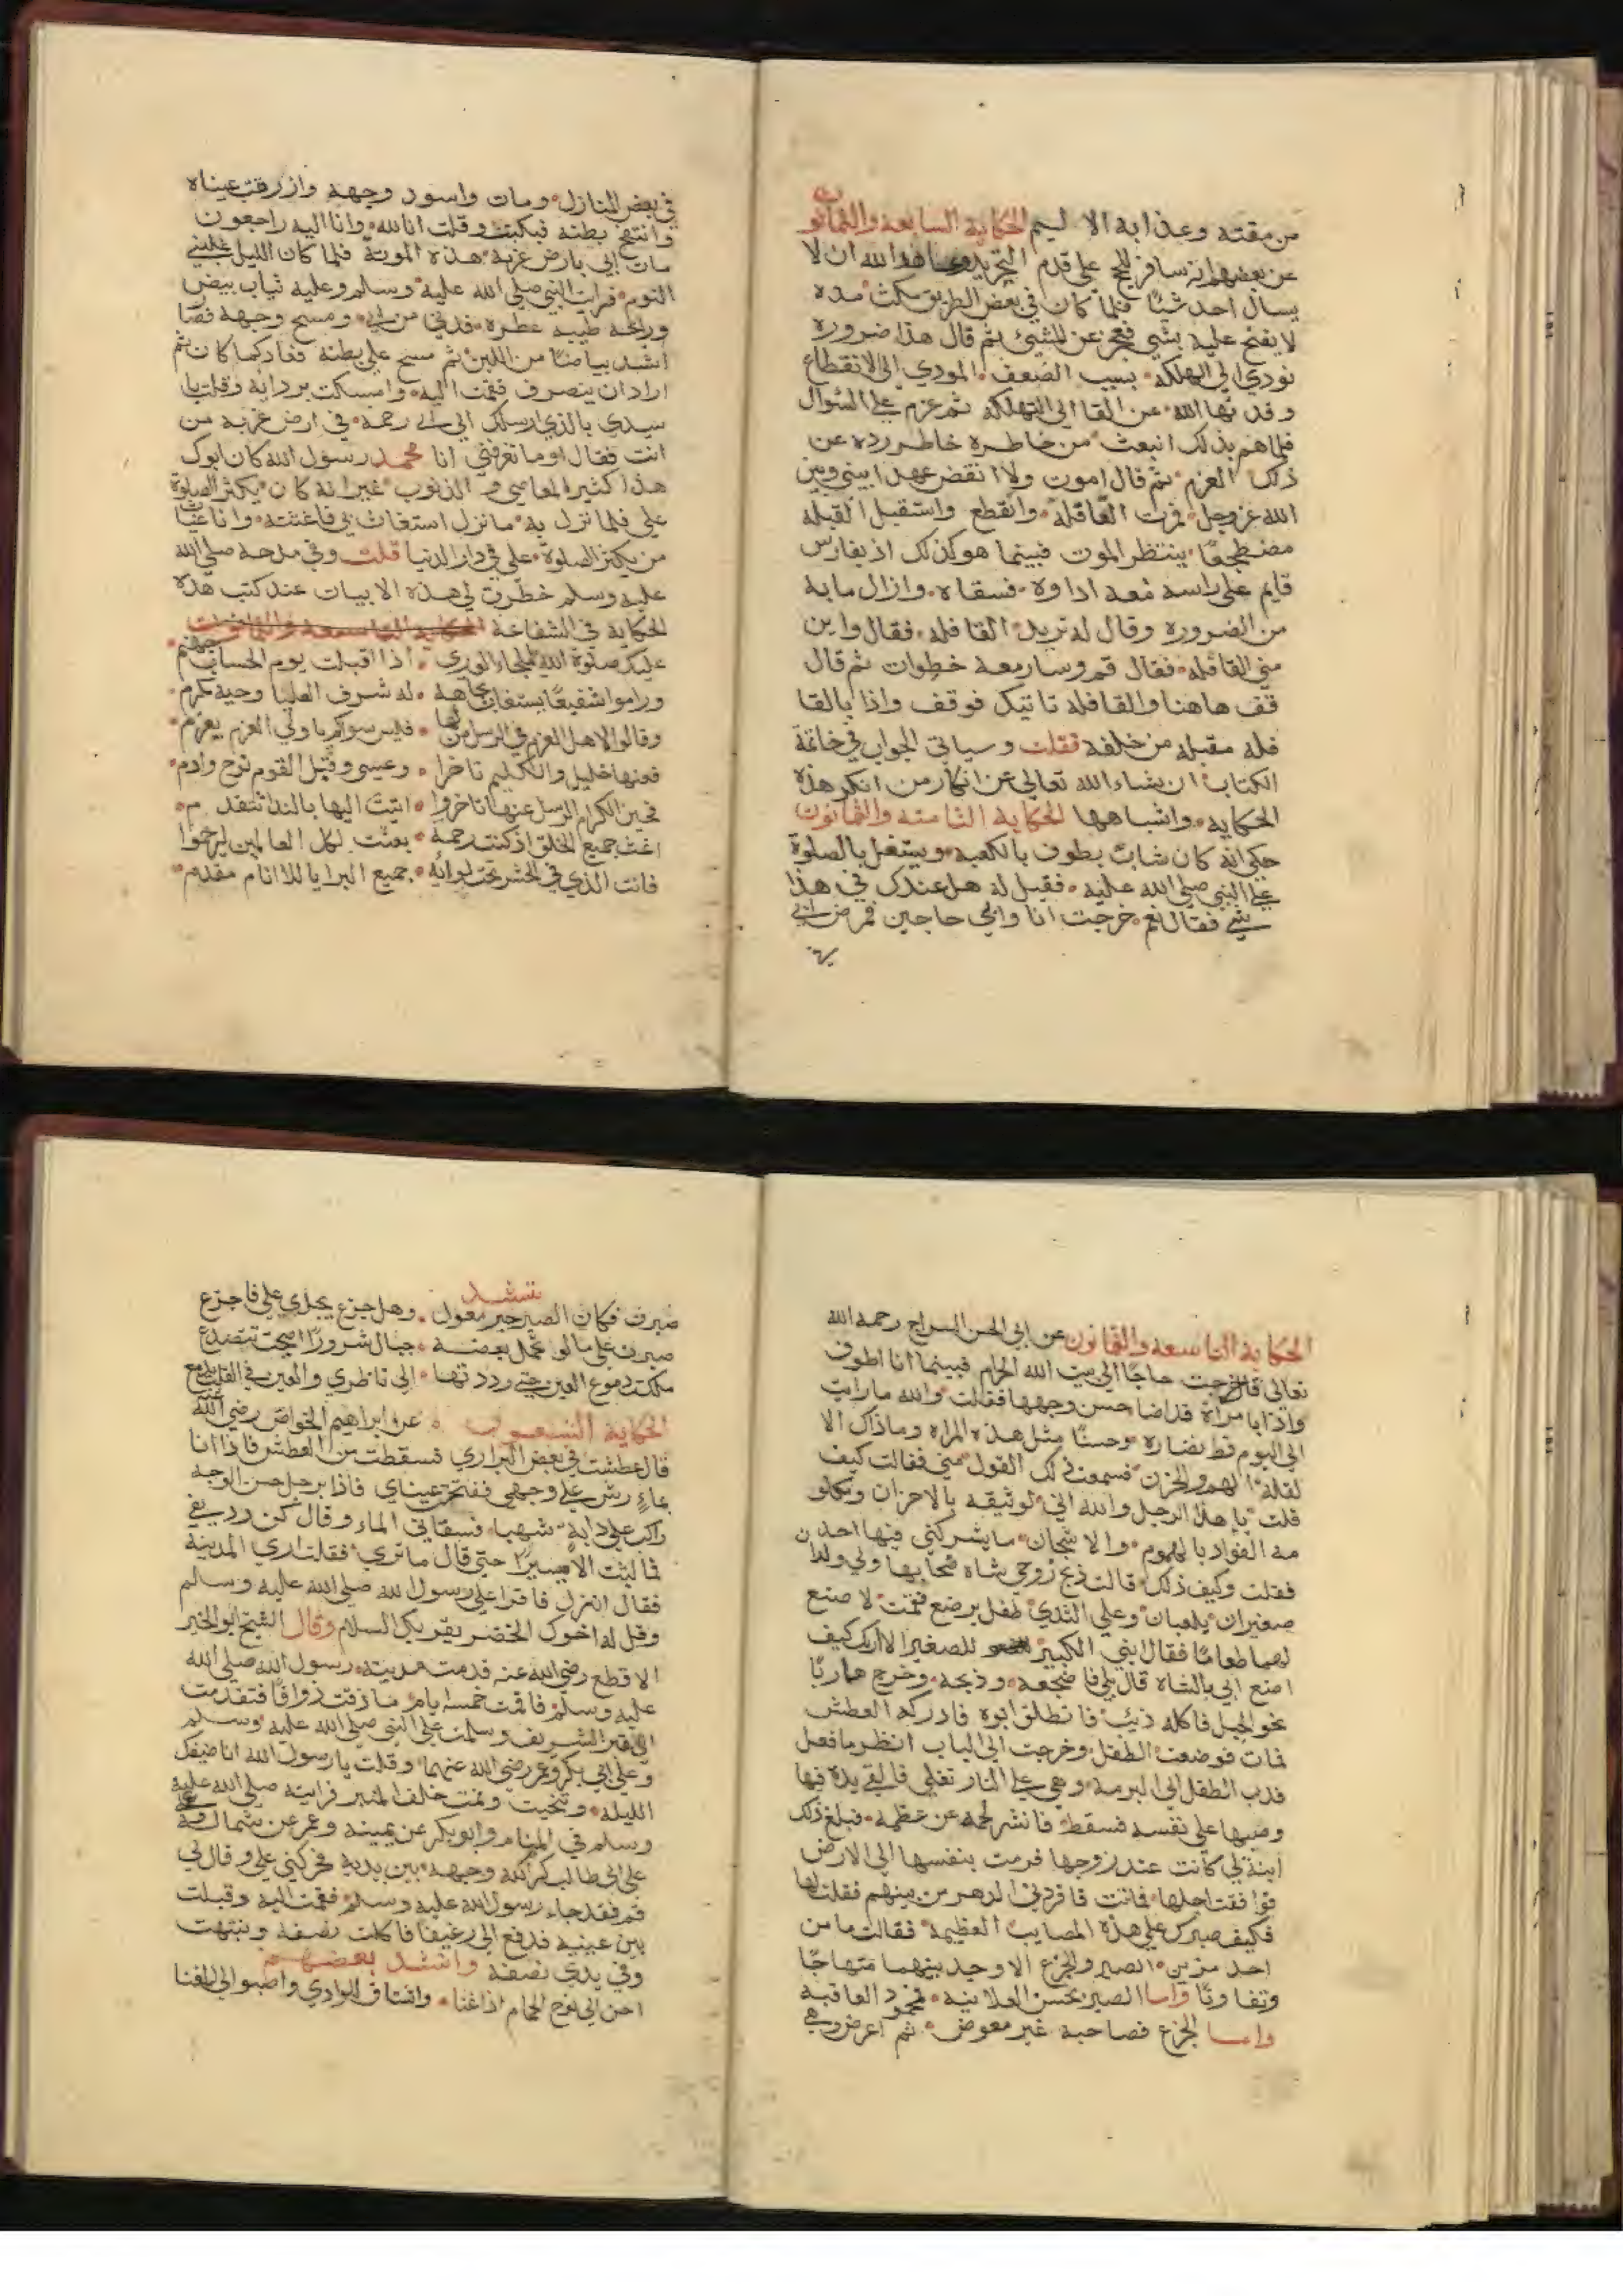 من مقته وعذابه الاليم الحكاية السابعة والثمانون
عن بعضهم انه سافر للحج علي قدم التجريد وعاهد الله ان لا
يسال احد شيًا فلما كان في بعض الطريق مكث مده
لا يفتح عليه بشي فعجز عن المشيئ ثم قال هذا ضروره
تودي الي الهلكه بسبب الضعف المودي الي الانقطاع
وقد نها الله عن القا الي التهلكه ثم عزم علي السوال
فلما هم بذلك انبعث من خاطره خاطر رده عن
ذلك العزم ثم قال اموت ولا انقض عهدا بيني وبين
الله عز وجل فمرت القافلة وانقطع واستقبل القبله
مضطجعًا ينتظر الموت فبينما هو كذلك اذ بفارس
قايم علي راسه معه اداوة فسقاه وازال ما به
من الضروره وقال له تريد القافله فقال واين
مني القافله فقال قم وسار معه خطوات ثم قال
قف هاهنا والقافله تاتيك فوقف واذا بالقا
فله مقبله من خلفه فقلت وسياتي الجواب في خاتمة
الكتاب ان يشاء الله تعالي عن انكار من انكر هذه
الحكايه واشباهها الحكاية الثامنه والثمانون
حكي انه كان شابٌ يطوف بالكعبه ويشتغل بالصلوة
علي النبي صلي الله عليه فقيل له هل عندك في هذا
شي فقال نعم خرجت انا وابي حاجين فمرض ابي
في بعض المنازل ومات واسود وجهه وازرقت عيناه
وانتفخ بطنه فبكيت وقلت انا لله وانا اليه راجعون
مات ابي بارض غربه هذه الموتة فلما كان الليل غلبني
النوم فرايت النبي صلي الله عليه وسلم وعليه ثياب بيض
ورايحه طيبه عطره فدني من ابي ومسح وجهه فصا
اشد بياضًا من اللبن ثم مسح علي بطنه فعاد كما كان ثم
اراد ان ينصرف فقمت اليه وامسكت بردائه وقلت يا
سيدي بالذي ارسلك الي ابي رحمة في ارض غربه من
انت فقال او ما تعرفني انا محمد رسول الله كان ابوك
هذا كثير المعاصي والذنوب غير انه كان يكثر الصلوة
علي فلما نزل به ما نزل استغاث بي فاغثته وانا غياث
من يكثر الصلوة علي في دار الدنيا قلت وفي مدحه صلي الله
عليه وسلم خطرت لي هذه الابيات عند كتب هذه
الحكاية في الشفاعة الحكاية التاسعة والثمانون
عليك صلوة الله يا ملجاء الوري اذا اقبلت يوم الحساب جهنم
وراموا شفيعًا يستغاث بجاهه له شرف العليا وجيه مكرم
وقالوا لاهل العزم في الرسل من لها فليس سواكم يا ولي العزم يعزم
فعنها خليل والكليم تاخرا وعيسي وقبل القوم نوح وادم
فحين الكرام الرسل عنها تاخروا اتيت اليها بالندا تتقدم
اغث جميع الخلق اذ كنت رحمة بعثت لكل العالمين ليرحموا
فانت الذي في الحشر تحت لوائه جميع البرايا للانام مقدم
الحكاية التاسعه والثمانون عن ابي الحسن السراج رحمه الله
تعالي قال خرجت حاجًا الي بيت الله الحرام فبينما انا اطوف
واذا بامراة قد اضا حسن وجهها فقالت والله ما رايت
الي اليوم قط نضاره وحسنًا مثل هذه المراه وماذاك الا
لقلة الهم والحزن فسمعت ذلك القول مني فقالت كيف
قلت يا هذا الرجل والله اني لوثيقه بالاحزان ومكلو
مه الفواد بالهموم والاشجان ما يشركني فيها احد
فقلت وكيف ذلك قالت ذبح زوجي شاه ضحا بها ولي ولدان
صغيران يلعبان وعلي الثدي طفل يرضع فقمت لاصنع
لهما طعامًا فقال ابني الكبير للصغير الا اريك كيف
اصنع ابي بالشاه قال بلي فاضجعه وذبحه وخرج هاربًا
نحو الجبل فاكله ذئب فانطلق ابوه فادركه العطش
فمات فوضعت الطفل وخرجت الي الباب انظر ما فعل
فدب الطفل الي البرمه وهي علي النار تغلي فالقي يده فيها
وصبها علي نفسه فسقط فانتشر لحمه عن عظمه فبلغ ذلك
ابنة لي كانت عند زوجها فرمت بنفسها الي الارض
فوافقت اجلها فماتت فافردني الدهر من بينهم فقلت لها
فكيف صبرك علي هذه المصايب العظيمة فقالت ما من
احد ميز بين الصبر والجزع الا وجد بينهما منهاجًا
وتفاوتًا واما الصبر بحسن العلانيه فمحمود العاقبه
واما الجزع فصاحبه غير معوض ثم اعرض وهي
تنشد
صبرت فكان الصبر خير معول وهل جزع يجدي علي فاجزع
صبرت علي ما لو تحمل بعضه جبال شرورًا اصبحت تتصدع
ملكت دموع العين حتي رددتها الي ناظري والعين في القلب تدمع
الحكاية التسعون عن ابراهيم الخواص رضي الله عنه
قال عطشت في بعض البراري فسقطت من العطش فاذا انا
بماءٍ رش علي وجهي ففتحت عيناي فاذا برجل حسن الوجه
راكب علي دابة شهبا فسقاني الماء وقال كن رديفي
فما لبثت الا يسيرًا حتي قال ما تري فقلت اري المدينة
فقال انزل فاقرا علي رسول الله صلي الله عليه وسالم
وقل له اخوك الخضر يقريك السلام وقال الشيخ ابو الخير
الاقطع رضي الله عنه قدمت مدينة رسول الله صلي الله
عليه وسلم فاقمت خمسة ايام ما ذقت ذواقًا فتقدمت
الي القبر الشريف وسلمت علي النبي صلي الله عليه وسلم
وعلي ابي بكر وعمر رضي الله عنهما وقلت يا رسول الله انا ضيفك
الليله وتنحيت ونمت خلف المنبر فرايته صلي الله عليه
وسلم في المنام وابو بكر عن يمينه وعمر عن شماله
علي ابي طالب كرم الله وجهه بين يديه فحركني علي وقال لي
قم فقد جاء رسول الله عليه وسلم فقمت اليه وقبلت
بين عينيه فدفع الي رغيفًا فاكلت نصفه وبنتهت
وفي يدي نصفه وانشد بعضهم
احن الي نوح الحمام اذا غنا واشتاق للوادي واصبو الي المغنا